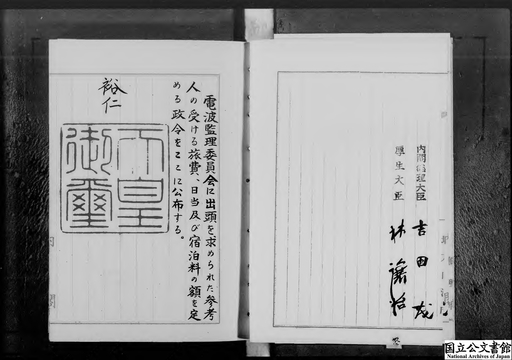 内閣総理大臣 吉田茂
厚生大臣 林譲治
電波監理委員会に出頭を求められた参考
人の受ける旅費、日当及び宿泊料の額を定
める政令をここに公布する。
裕仁
天皇
御璽
国立公文書館
National Archives of Japan